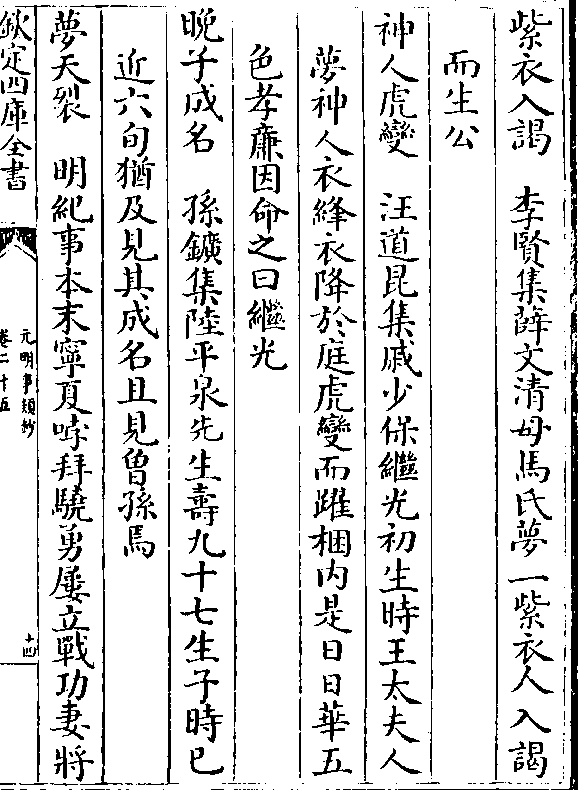 紫衣入謁　李賢集薛文清母馬氏夢一紫衣人入謁
而生公
神人虎變　汪道昆集戚少保繼光初生時王太夫人
夢神人衣絳衣降於庭虎變而躍梱内是日日華五
色孝亷因命之曰繼光
晚子成名　孫鑛集陸平泉先生壽九十七生子時已
近六旬猶及見其成名且見曾孫焉
夢天裂　明紀事本末寧夏哱拜驍勇屢立戰功妻將
欽定四庫全書
元明事類鈔
卷二十五
十四